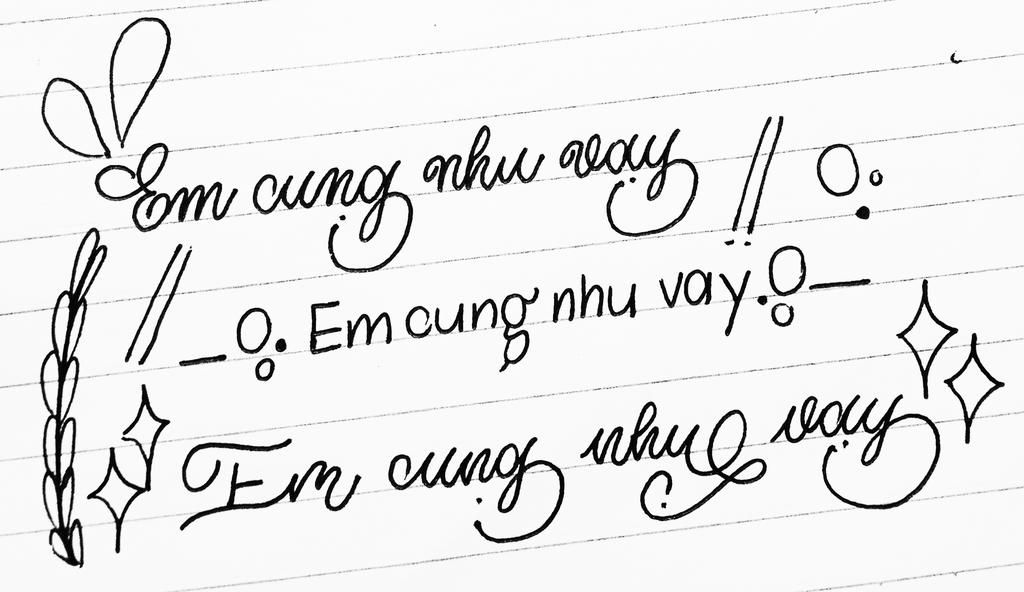 Em cung nhu vay
Em cung nhu vay
Em cung nhu vay